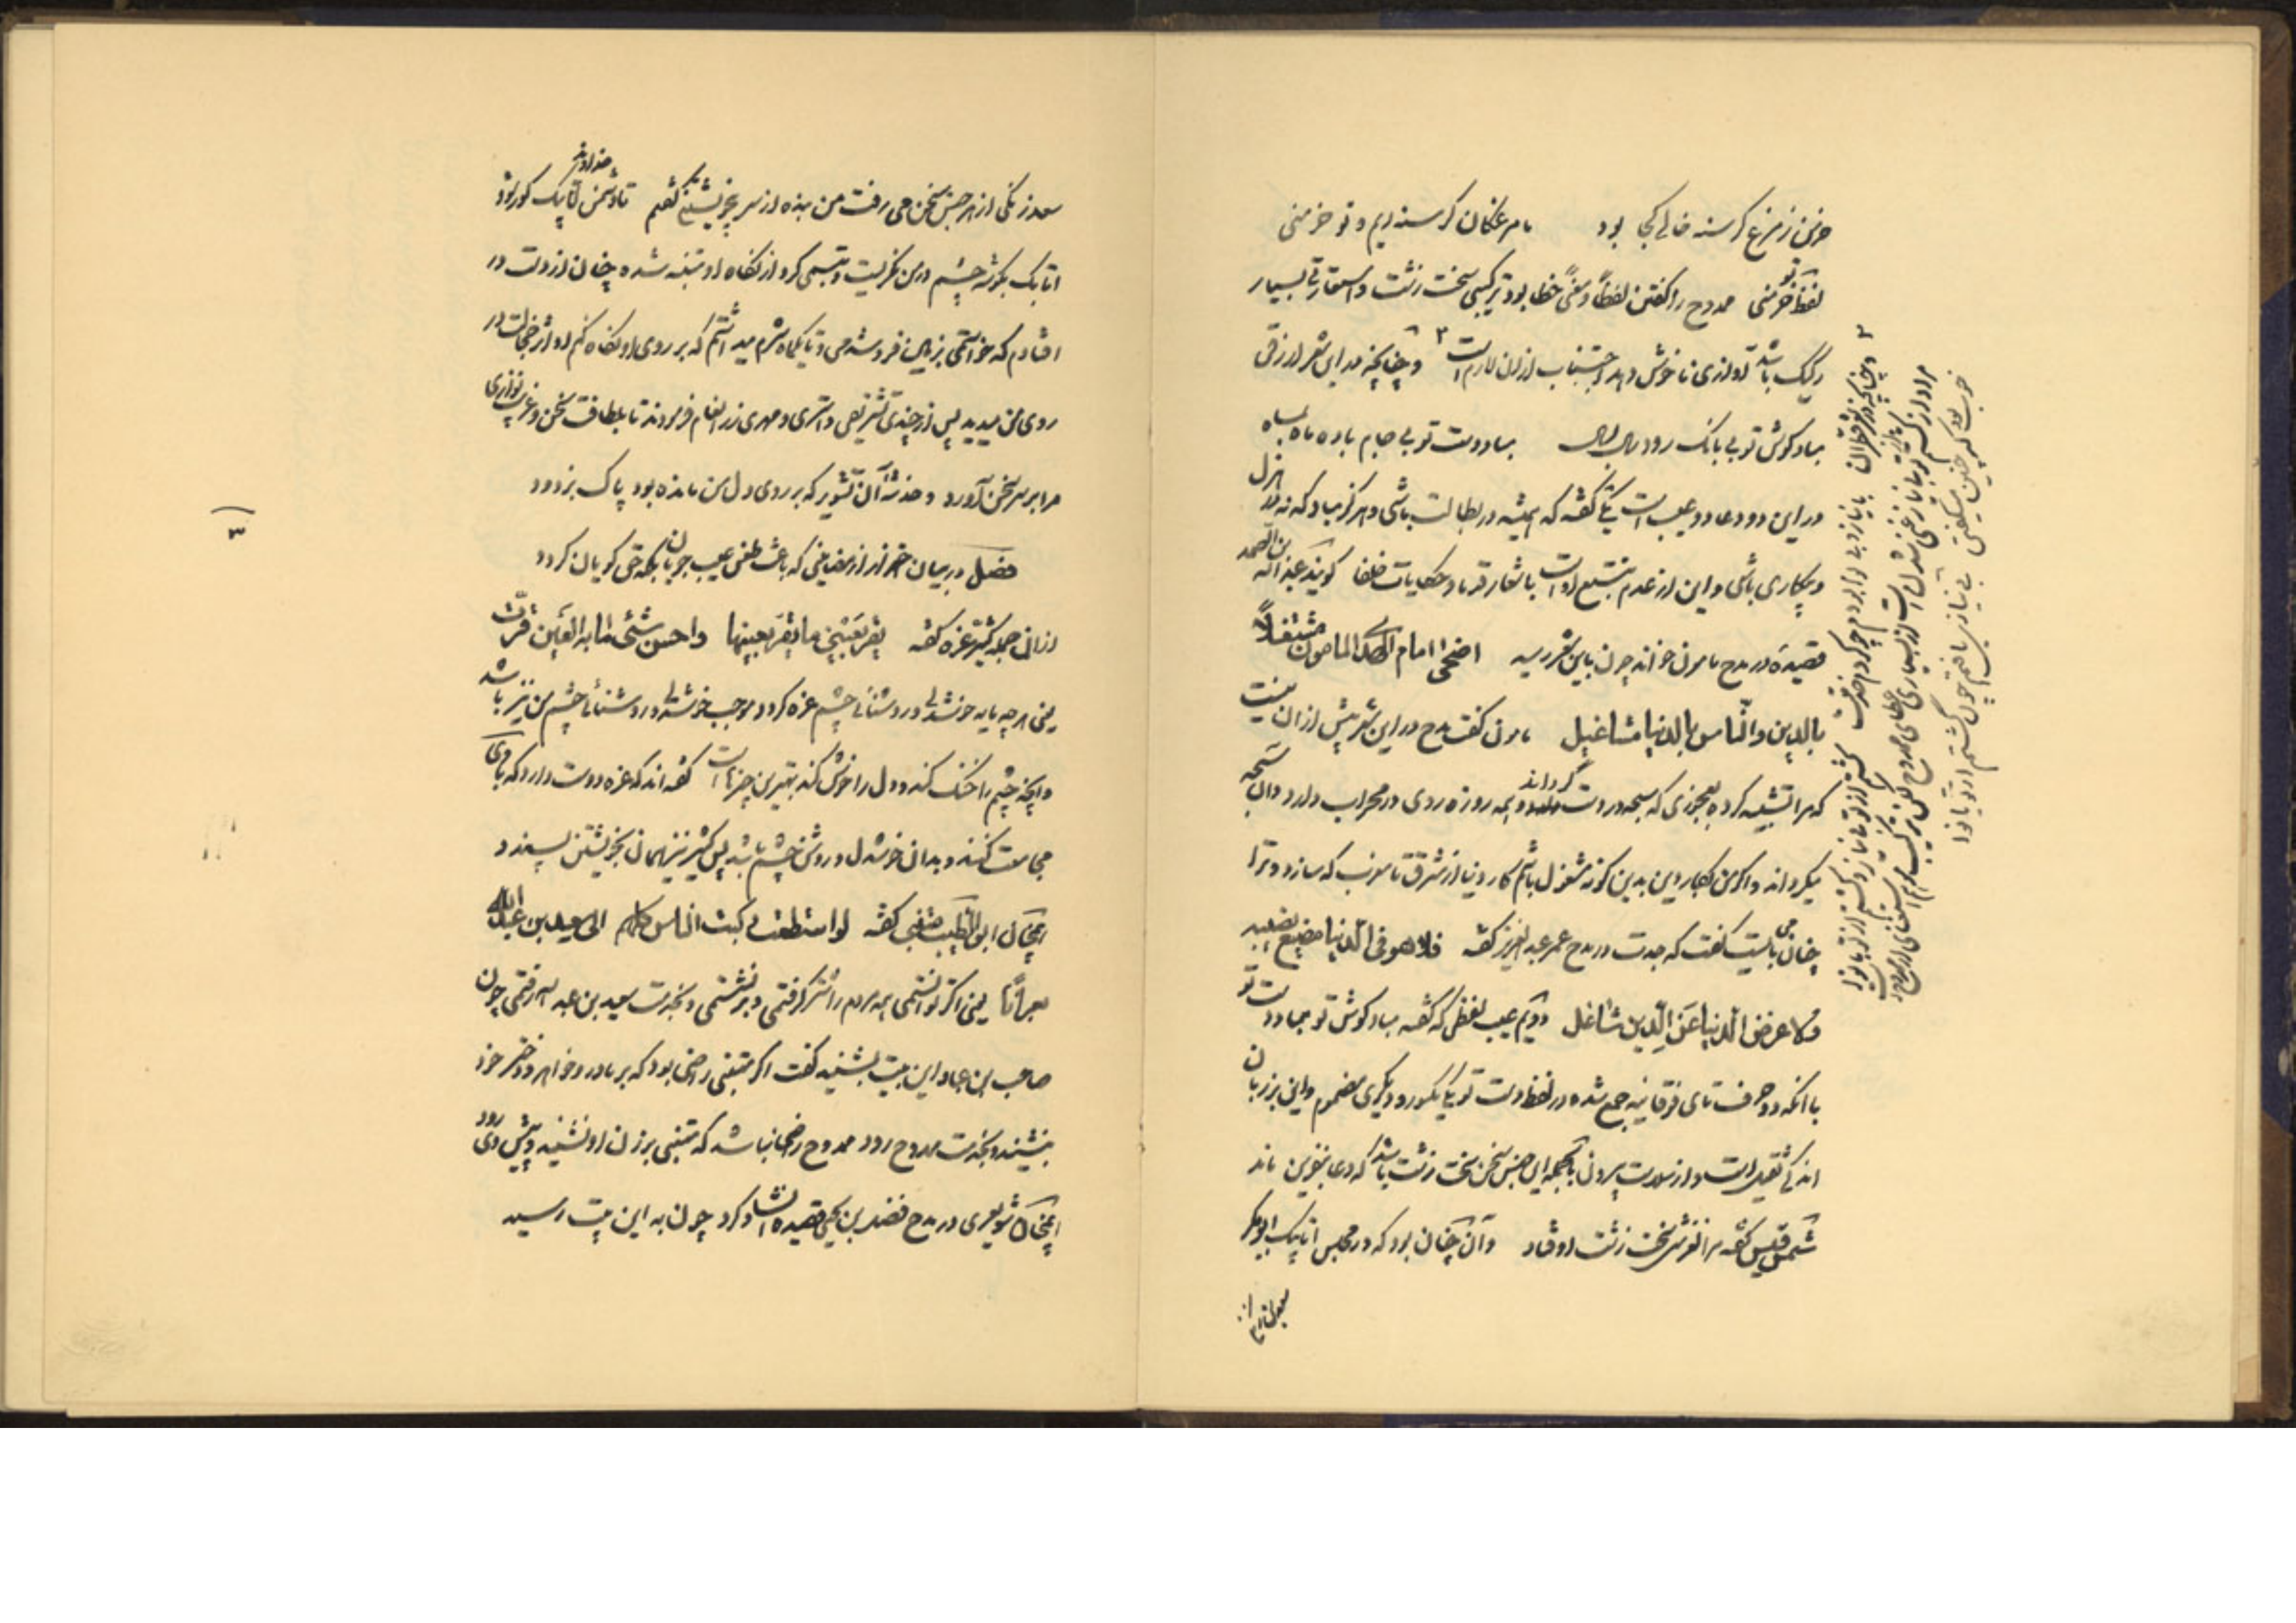 خرمن ز مرغ گرسنه خالی کجا بود     ما مرغکان گرسنه ایم و تو خرمنی
لفظ تو خرمنی ممدوح را گفتن لفظاً و معنیً خطا بود ترکیبی سخت زشت و استعارتی بسیار
رکیک باشد آوازی ناخوش دهد و اجتناب از آن لازم است ۲ و چنانچه در این شعر ازرقی
مباد گوش تو بی بانک رود سال بسال     مباد دست تو بی جام باده ماه بماه
در این دو دعا دو عیب است یکی گفته که همیشه در بطالت باشی و هرگز مباد که نه در هزل
و بیکاری باشی و این از عدم تتبع اوست باشعار قدما و حکایات خلفا گویند عبدالله بن الصمد
قصیده در مدح مامون خواند چون باین شعر رسید اضحی امام الهدی المامون مشتغلاً
بالدین والناس بالدنیا مشاغیل مامون گفت مدح در این شعر بیش از آن نیست
که مرا تشبیه کرده بعجوزی که سبحه در دست گرداند و همه روزه روی در محراب دارد و آن سبحه
میگرداند و اگر من بکار دین بدین گونه مشغول باشم کار دنیا از مشرق تا مغرب که سازد و ترا
چنان می بایست گفت که جدت در مدح عمر عبدالعزیز گفته فلا هو فی الدنیا مضیع نصیبه
ولا عرض الدنیا عن الدین شاغل دویم عیب لفظی که گفته مباد گوش تو و مباد دست تو
با آنکه دو حرف تای فوقانیه جمع شده در لفظ دست تو یکی مکسور و دیگری مضموم و این بر زبان
اندکی ثقیل است و از سلاست بیرون بالجمله این جنس سخن سخت زشت باشد که دعا بنفرین ماند
شمس قیس گفته مرا لغزشی سخت زشت اوفتاد و آن چنان بود که در مجلس اتابک ابوبکر
۲ و چنانچه در شعر فرقدانی
با نیاز
خوب بود که چنین میگفتی بی نیازی یافتم چون گشتم از تو با نوا
سعد زنگی از هر جنس سخن می رفت من بنده از سر بی خویشتنی گفتم تا دشمن خداوند اتابک کور بود
اتابک بگوشه چشم در من نگریست و تبسمی کرد از نگاه او متنبه شده چنان از دست در
افتادم که خواستمی بزمین فرو شدمی و تا یکماه شرم میداشتم که بر روی او نگاه کنم او اثر خجالت در
روی من میدید پس از چندی تشریفی و استری و مهری زر انعام فرمودند تا بلطافت سخن و غریب نوازی
مرا بر سر سخن آورد و خدشه آن تشویر که بر روی دل من مانده بود پاک بزدود
فصل در بیان احتراز از مضامینی که باعث طعن عیب جویان بلکه حق گویان گردد
از آن جمله کثیر عزه گفته یقر بعینی ما یقر بعینها واحسن شیٔ ما به العین قرّت
یعنی هر چه مایه خوشدلی و روشنائی چشم عزه گردد موجب خوشدلی و روشنائی چشم من نیز باشد
و آنچه چشم را خنک کند و دل را خوش کند بهترین چیزهاست گفته اند که عزه دوست دارد که با وی
مجامعت کنند و بدان خوشدل و روشن چشم باشد پس کثیر نیز همان بخویشتن پسندد
همچنان ابوالطیب متنبی گفته لو استطعت رکبت الناس کلهم الی سعید بن عبدالله
بعرانا یعنی اگر توانستمی همه مردم را شتر گرفتمی و بر نشستمی و بخدمت سعید بن عبدالله رفتمی چون
صاحب بن عباد این بیت بشنید گفت اگر متنبی راضی بود که بر مادر و خواهر و دختر خود
بنشیند و بخدمت ممدوح رود ممدوح راضی نباشد که متنبی بر زن او نشیند و پیش وی رود
همچنان شویعری در مدح فضل بن یحیی قصیده انشاد کرد چون به این بیت رسید
۳